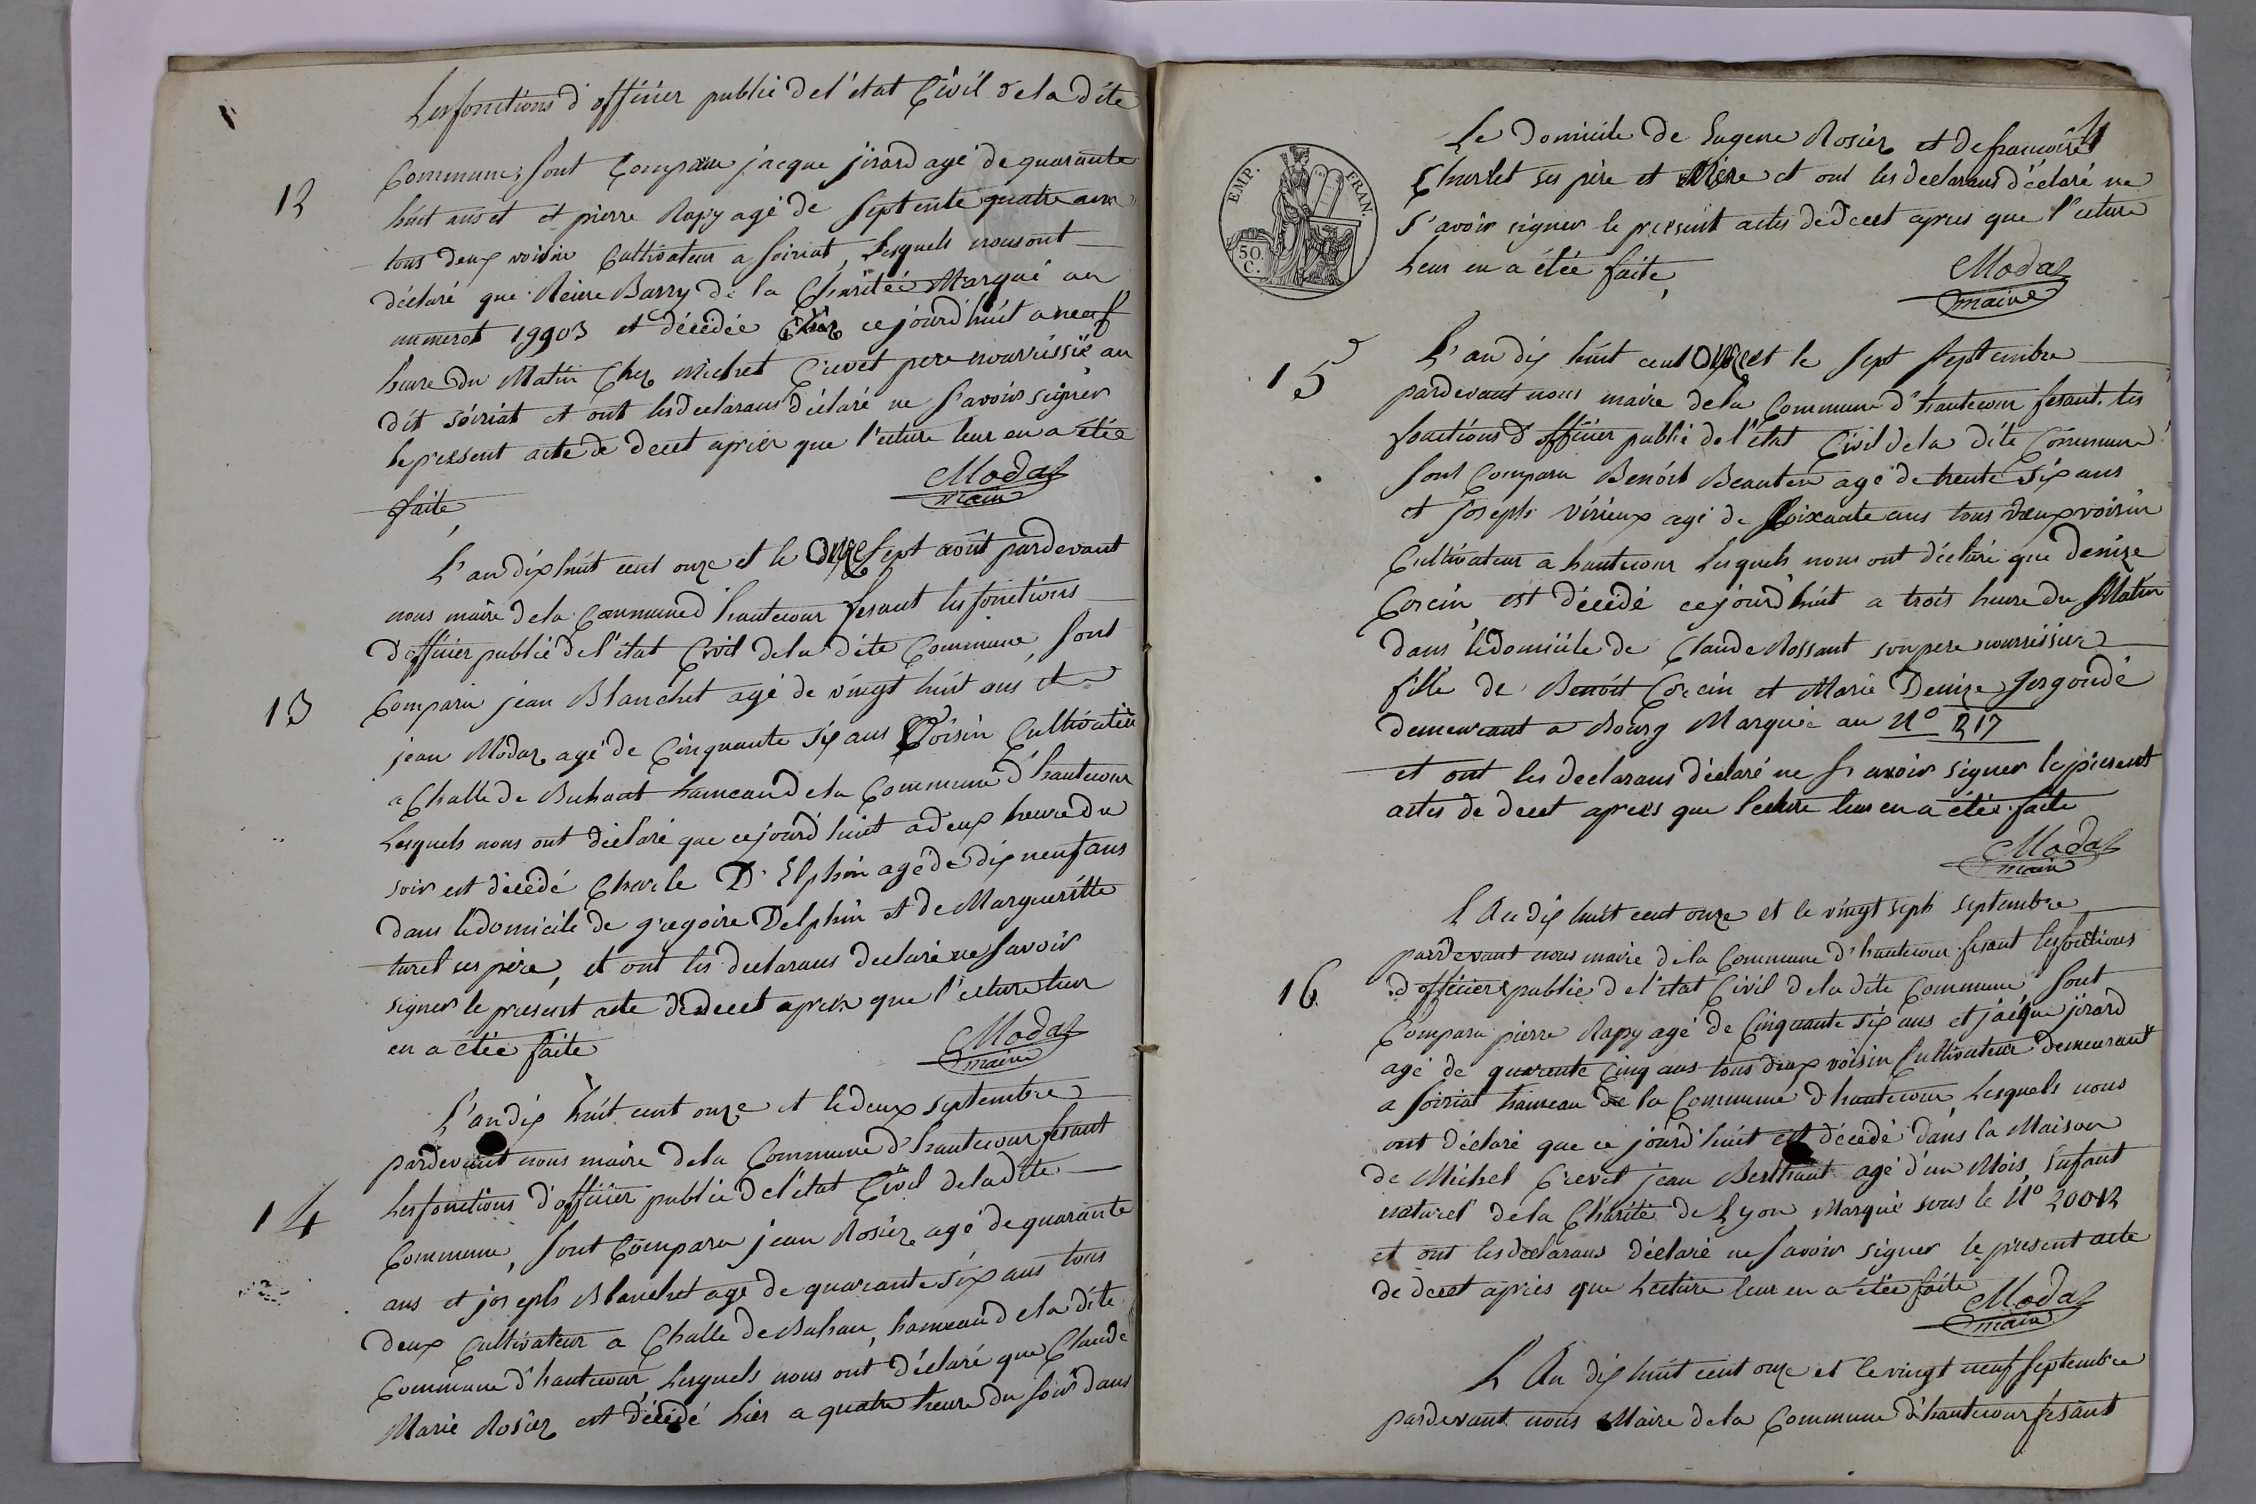 Les fonctions d'officier public de l'état Civil de la dite
12
Commune, sont Comparu jacque jirard agé de quarante
huit ans et et pierre Rapy agé de septente quatre ans
tous deux voisin Cultivateur a soiriat, Lesquels nous ont
déclaré que Reine Barry de la Charitée Marqué au
numerot 19903 et décédée ce jourd'huit a neuf
heure du Matin Chez Michel Crevet pere nourrissié au
dit soiriat et ont les declarans déclaré ne s'avoir signer
le present acte de decet aprier que l'eture leur en a étée
faite
Modaz
maire
L'an dix huit cent onze et le sept août pardevant
nous maire de la Commune d'hautecour fesant les fonctions
d'officier public de l'état Civil de la dite Commune, sont
13
Comparu jean Blanchet agé de vingt huit ans et
jean Modaz agé de Cinquante six ans Voisin Cultivateur
a Challe de Buhant hameaud de la Commune d'hautecour
Lesquels nous ont déclaré que ce jourd'huit a deux heure du
soir est décédé Charle D'Elphin agé de dix neuf ans
dans le domicile de gregoire Delphin et de Margueritte
turel ses père, et ont les declarans declaré ne savoir
signer le present acte de decet aprier que l'ecture leur
en a étée faite
Modaz
maire
L'an dix huit cent onze et le deux septembre
pardevant nous maire de la Commune d'hautecour fesant
Les fonctions d'officier public de l'état Civil de la dite
14
Commune, sont Comparu jean Rosier agé de quarante
ans et joseph Blanchet agé de quarante six ans tous
deux Cultivateur a Challe de Buhan, hameaud de la dite
Commune d'hautecour Lesquels nous ont déclaré que Claude
Marie Rosier est décédé hier a quatre heure du soir dans
4
EMP. FRAN.
50. C.
Le Domicile de Eugene Rosier et de francoise
Churlet ses père et Mère et ont les declarans déclaré ne
s'avoir signer le present actes de decet apres que l'eture
Leur en a étée faite,
Modaz
maire
15
L'an dix huit cent onze et le sept septembre
pardevant nous maire de la Commune d'hautecour fesant les
fonctions d'officier public de l'état Civil de la dite Commune
sont Comparu Benoit Beauten agé de trente six ans
et joseph virieux agé de soixante ans tous deux voisin
Cultivateur a hautecour Lesquels nous ont déclaré que denize
Corcin est décédé ce jourd'huit a trois heure du Matin
dans le domicile de Claude Rossant son pere nourrissier
fille de Benoit Corcin et Marie Denize Gergondé
demeurant a Bourg Marquée au N° 217
et ont les declarans déclaré ne s'avoir signer le present
actes de decet apres que lecture leur en a étée faite
Modaz
maire
L'An dix huit cent onze et le vingt sept septembre
pardevant nous maire de la Commune d'hautecour fesant les fonctions
16
d'officiers public de l'état Civil de la dite Commune sont
Comparu pierre Rapy agé de Cinquante six ans et jacque jirard
agé de quarante cinq ans tous deux voisin Cultivateur demeurant
a soiriat hameau de la Commune d'hautecour Lesquels nous
ont déclaré que ce jourd'huit est décédé dans la Maison
de Michel Crevet jean Berthaut agé d'un Mois Enfant
naturel de la Charité de Lyon Marqué sous le N° 20012
et ont les declarans déclaré ne savoir signer le present acte
de decet apriés que Lecture leur en a étée faite
Modaz
maire
L'An dix huit cent onze et le vingt neuf septembre
pardevant nous Maire de la Commune d'hautecour fesant